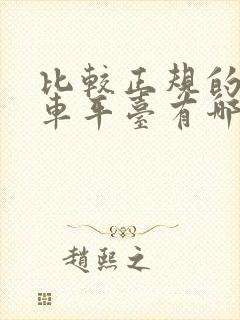 比較正規的
車平臺有哪
趙熙之